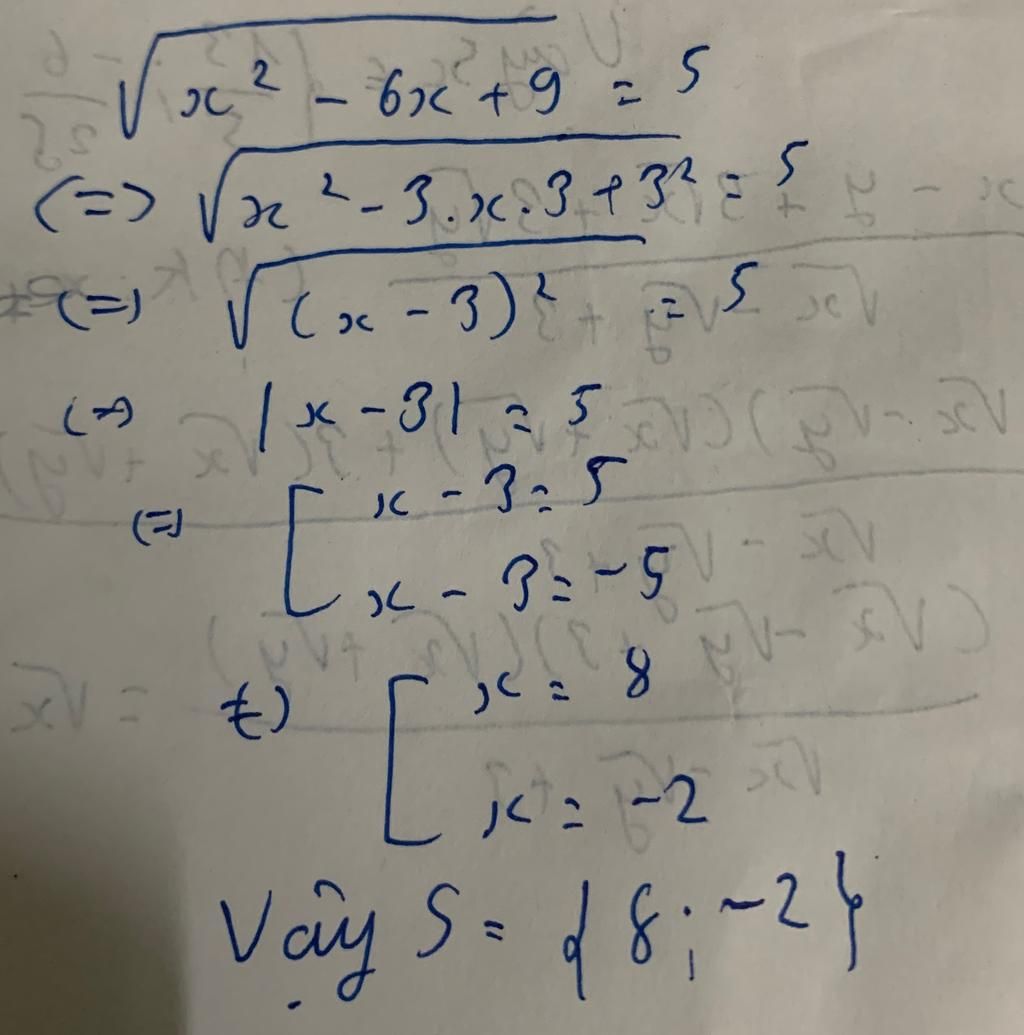 √(x² - 6x + 9) = 5
(=) √(x² - 3.x.3 + 3²) = 5
(=) √((x - 3)²) = 5
(=) |x - 3| = 5
(=) [ x - 3 = 5
x - 3 = -5
(=) [ x = 8
x = -2
Vậy S = { 8 ; -2 }